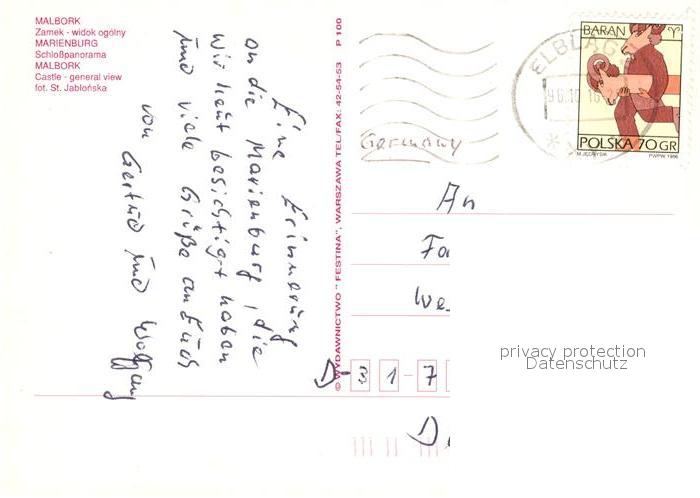 MALBORK
Zamek - widok ogólny
MARIENBURG
Schloßpanorama
MALBORK
Castle - general view
fot. St. Jabłońska
Eine Erinnerung
an die Marienburg, die
wir heut besichtigt haben
und viele Grüße an Euch
von Gertrud und Wolfgang
© WYDAWNICTWO "FESTINA", WARSZAWA TEL/FAX: 42-54-53 P 100
Germany
ELBLĄG
BARAN
POLSKA 70 GR
M. JĘDRYSIK PWPW 1996
An
D-31-7
privacy protection
Datenschutz